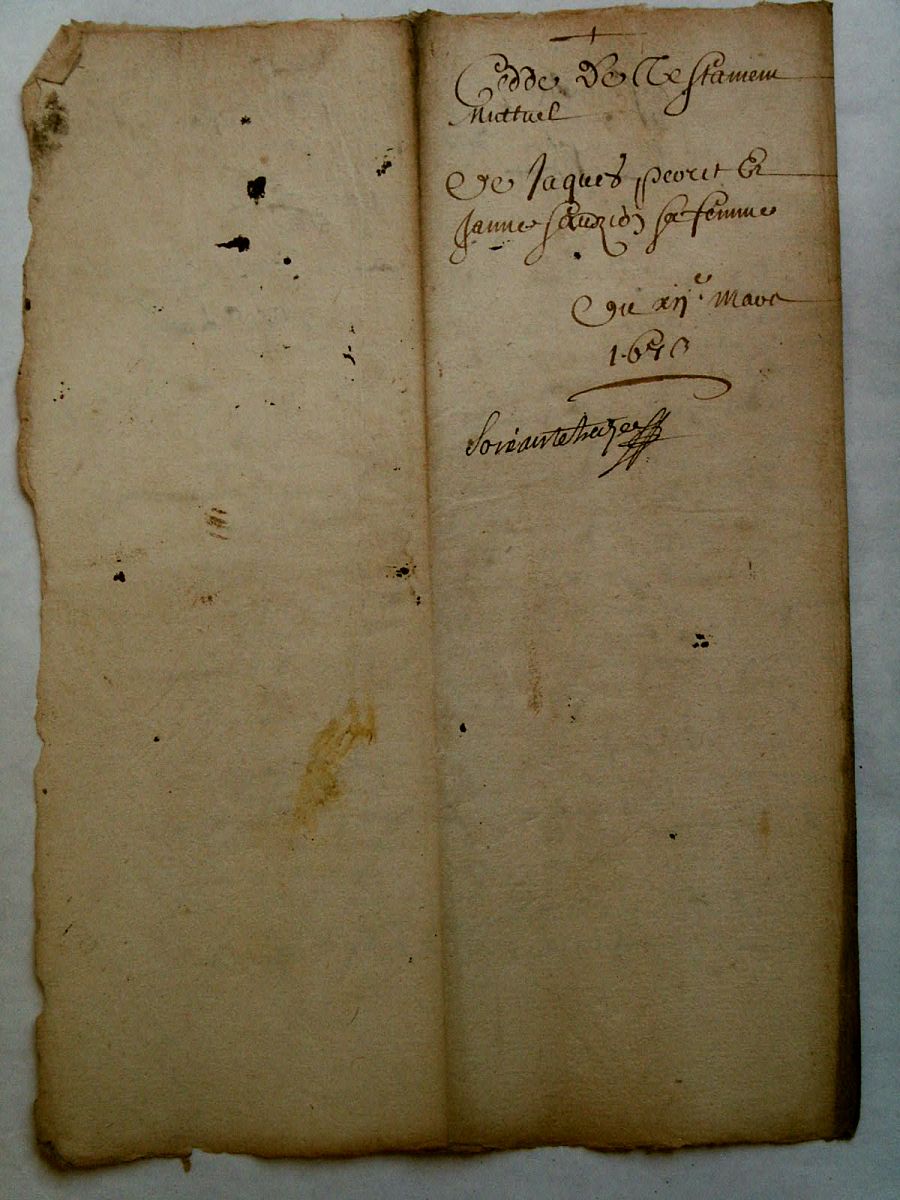 Cedde De Testament
Muttuel
De Jaques peorit Et
Janne sa femme
Du xij.e Mars
1673
Soixante treze